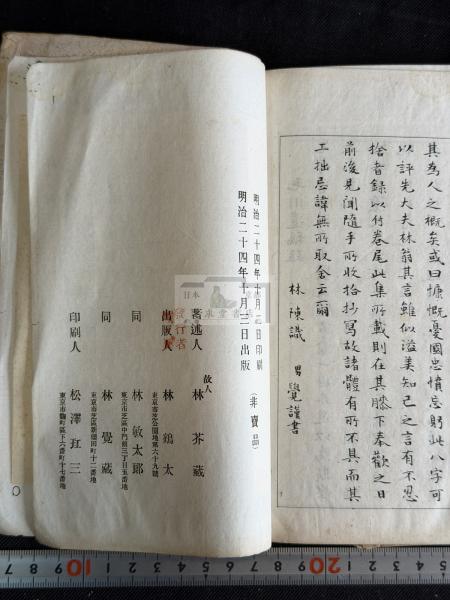 其為人之概矣或曰慷慨憂國忠憤忘躬此八字可
以評先大夫林翁其言雖似溢美知己之言有不忍
捨者錄以付卷尾此集所載則在其膝下奉歡之日
前後見聞隨手所收拾抄寫故諸體有所不具而其
工拙忌諱無所取舍云爾
林陳識 男覺謹書
明治二十四年十月 日印刷
明治二十四年十月三日出版
(非賣品)
著述人 故人 林芥蔵
出版人 林鶴太
發行者
東京市芝公園地第六十九號
同 林敏太郎
東京市芝區中門前三丁目五番地
同 林覺蔵
東京市芝區新堀町十二番地
印刷人 松澤玒三
東京市麴町區下六番町十七番地
日本
泉堂書
7 8 9 10 1 2 3 4 5 6 7 8 9 20 1 2 3